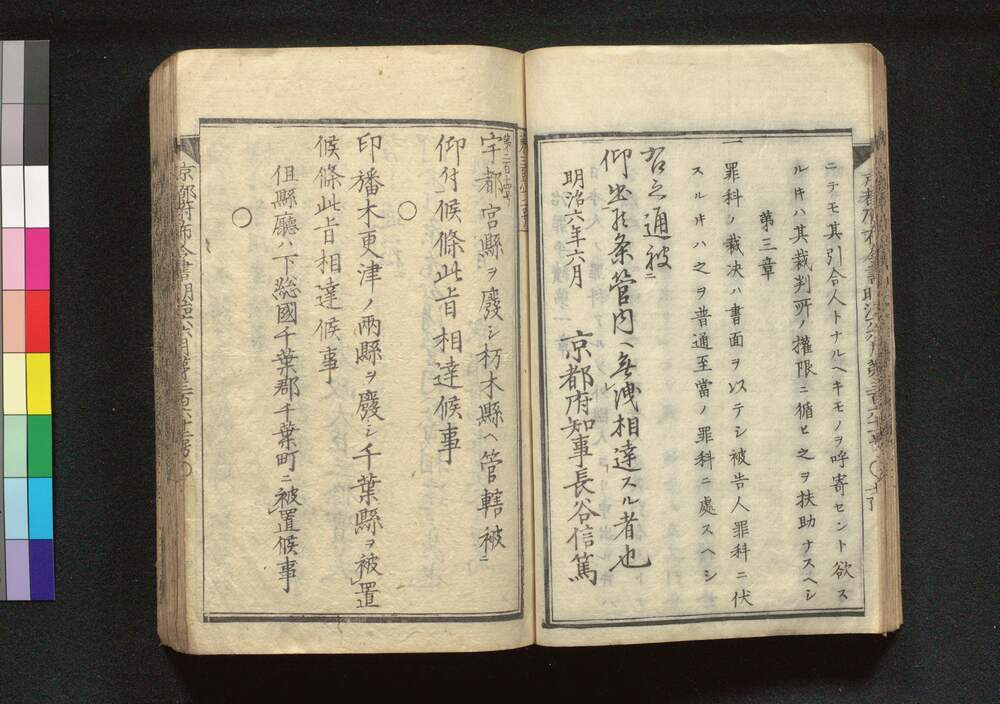 ニテモ其引合人トナルヘキモノヲ呼寄セント欲ス
ルキハ其裁判所ノ權限ニ循ヒ之ヲ扶助ナスヘシ
第三章
一
罪科ノ裁決ハ書面ヲ以ステシ被告人罪科ニ伏
スルキハ之ヲ普通至當ノ罪科ニ處スヘシ
右之通被ニ
仰出候条管内ヘ無洩相達スル者也
明治六年六月
京都府知事長谷信篤
宇都宮縣ヲ廢シ栃木縣ヘ管轄被ニ
仰付候條此旨相達候事
〇
印旛木更津ノ兩縣ヲ廢シ千葉縣ヲ被置
候條此旨相達候事
但縣廳ハ下総國千葉郡千葉町ニ被置候事
〇